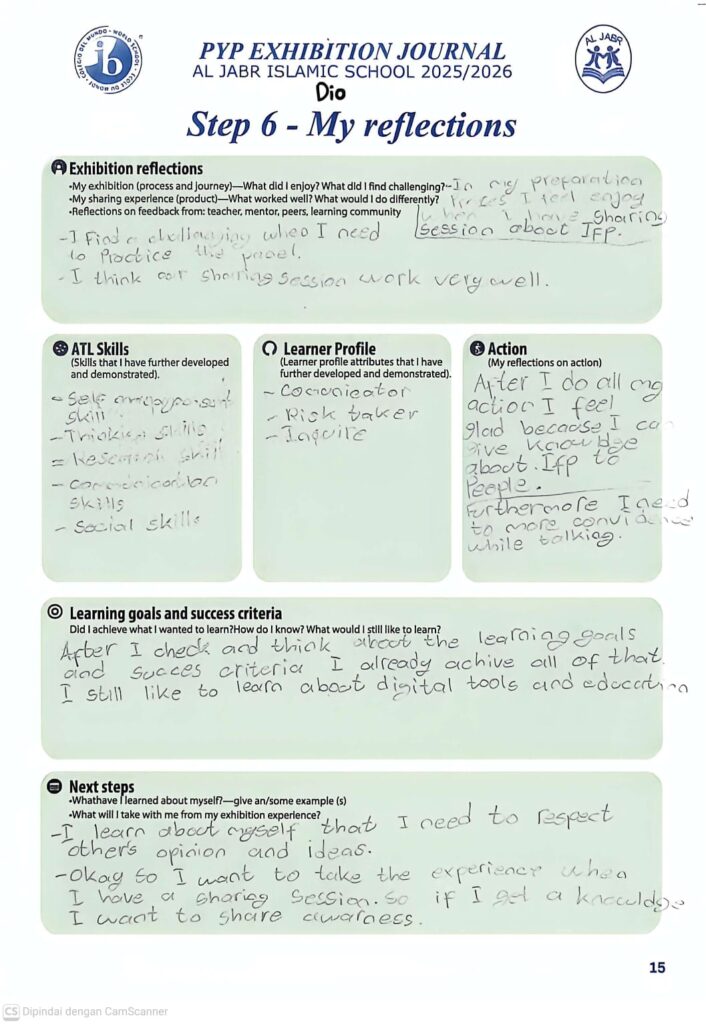 COLEGIO DEL MUNDO · WORLD SCHOOL · ÉCOLE DU MONDE ·
ib
AL JABR
PYP EXHIBITION JOURNAL
AL JABR ISLAMIC SCHOOL 2025/2026
Dio
Step 6 - My reflections
Exhibition reflections
•My exhibition (process and journey)—What did I enjoy? What did I find challenging?
•My sharing experience (product)—What worked well? What would I do differently?
•Reflections on feedback from: teacher, mentor, peers, learning community
- In my preparation
I feel enjoy
when I have sharing
session about IFP.
- I find a challanging when I need
to Practice the panel.
- I think our sharing session work very well.
ATL Skills
(Skills that I have further developed
and demonstrated).
- Self
skill
- Thinking skills
= Research skill
-
skills
- Social skills
Learner Profile
(Learner profile attributes that I have
further developed and demonstrated).
- Comunicator
- Risk taker
- Inquire
Action
(My reflections on action)
After I do all my
action I feel
glad because I can
give knowledge
about Ifp to
People.
Furthermore I need
to more convidence
while talking.
Learning goals and success criteria
Did I achieve what I wanted to learn?How do I know? What would I still like to learn?
After I check and think about the learning goals
and succes criteria I already achive all of that.
I still like to learn about digital tools and education
Next steps
•Whathave I learned about myself?—give an/some example (s)
•What will I take with me from my exhibition experience?
- I learn about myself that I need to respect
other's opinion and ideas.
- Okay so I want to take the experience when
I have a sharing session. So if I get a knowldge
I want to share awarness.
15
CS Dipindai dengan CamScanner